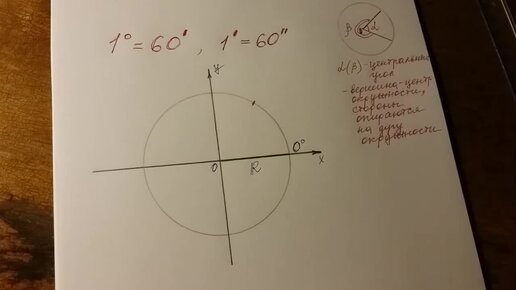 1° = 60', 1' = 60"
β α
α(β) - центральный
угол
- вершина - центр
окружности,
стороны
опираются
на дугу
окружности
y
0°
0 R x